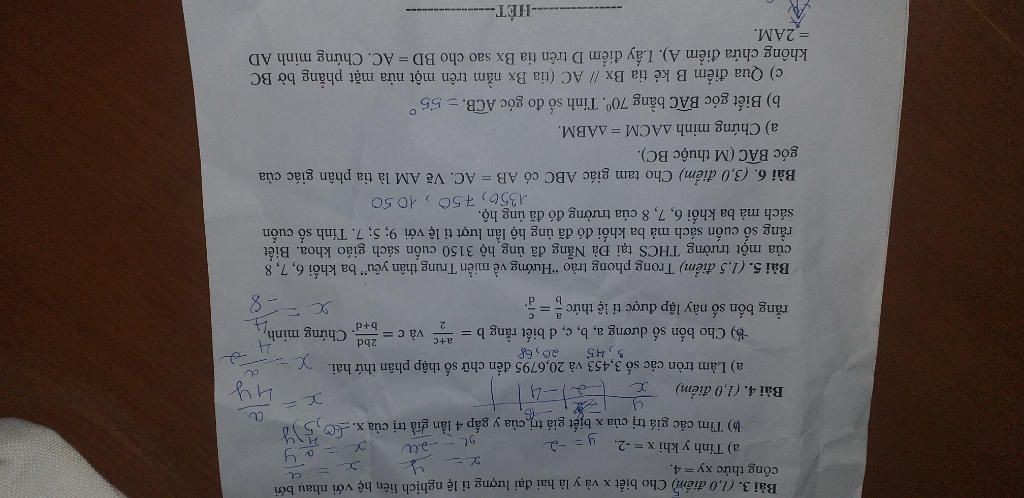 Bài 3. (1,0 điểm) Cho biết x và y là hai đại lượng tỉ lệ nghịch liên hệ với nhau bởi
công thức xy = 4.
a) Tính y khi x = -2.
y = -2
b) Tìm các giá trị của x biết giá trị của y gấp 4 lần giá trị của x.
Bài 4. (1,0 điểm)
a) Làm tròn các số 3,453 và 20,6795 đến chữ số thập phân thứ hai.
3,45 20,68
b) Cho bốn số dương a, b, c, d biết rằng b = a+c/2 và c = 2bd/b+d. Chứng minh
rằng bốn số này lập được tỉ lệ thức a/b = c/d.
Bài 5. (1,5 điểm) Trong phong trào "Hướng về miền Trung thân yêu" ba khối 6, 7, 8
của một trường THCS tại Đà Nẵng đã ủng hộ 3150 cuốn sách giáo khoa. Biết
rằng số cuốn sách mà ba khối đó đã ủng hộ lần lượt tỉ lệ với 9; 5; 7. Tính số cuốn
sách mà ba khối 6, 7, 8 của trường đó đã ủng hộ.
1350, 750, 1050
Bài 6. (3,0 điểm) Cho tam giác ABC có AB = AC. Vẽ AM là tia phân giác của
góc BAC (M thuộc BC).
a) Chứng minh ΔACM = ΔABM.
b) Biết góc BAC bằng 70⁰. Tính số đo góc ACB. = 55°
c) Qua điểm B kẻ tia Bx // AC (tia Bx nằm trên một nửa mặt phẳng bờ BC
không chứa điểm A). Lấy điểm D trên tia Bx sao cho BD = AC. Chứng minh AD
= 2AM.
-----------------HẾT-----------------